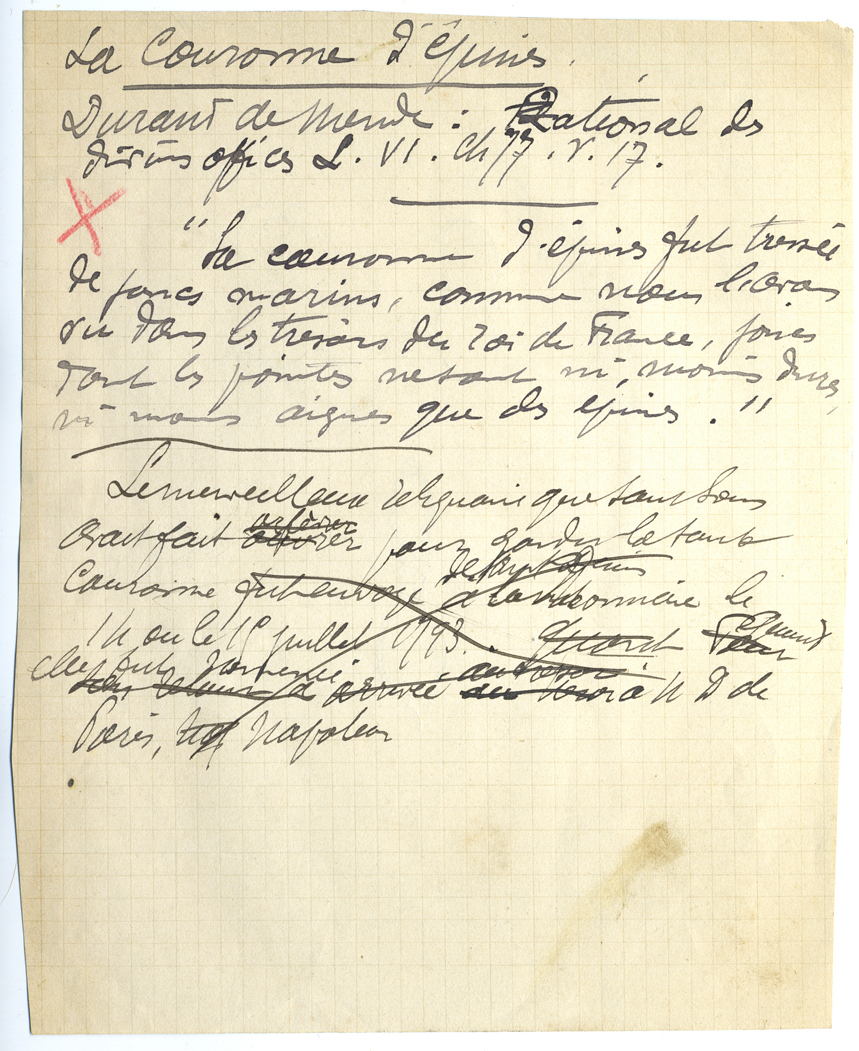 La Couronne d'épines.
Durant de Mende : Rational des
divins offices L. VI. Ch 77. v. 17.
"La couronne d'épines fut tressée
de joncs marins, comme nous l'avons
vu dans les trésors du roi de France, joncs
dont les pointes ne sont ni moins dures,
ni moins aigues que des épines."
Le merveilleux reliquaire que saint Louis
avait fait
pour garder la sainte
Couronne fut envoyé à la monnaie le
14 ou le 15 juillet 1793. Quand
elle fut ramenée à N D de
Paris, Napoléon